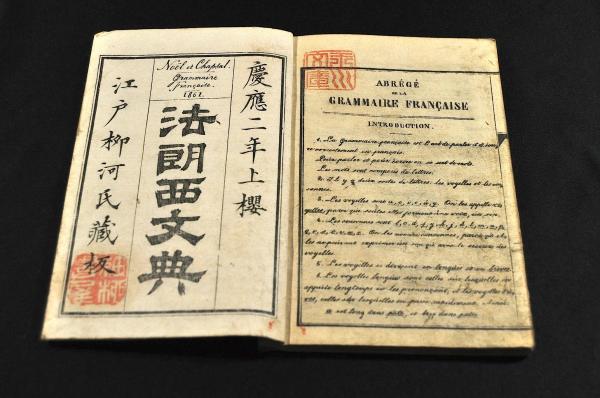 慶應二年上櫻
Noël et Chaptal.
Grammaire
française.
1861.
法朗西文典
江戸柳河氏藏板
ABRÉGÉ
DE LA
GRAMMAIRE FRANÇAISE
INTRODUCTION.
1. La Grammaire française est l'art de parler et d'écri-
re correctement en français.
Pour parler et pour écrire on se sert de mots.
Les mots sont composés de lettres.
2. Il y a deux sortes de lettres, les voyelles et les con-
sonnes.
3. Les voyelles sont a, e, i, o, u, y. On les appelle vo-
yelles, parce que seules elles forment une voix, un son.
4. Les consonnes sont b, c, d, f, g, h, j, k, l, m, n, p,
q, r, s, t, v, x, z. On les nomme consonnes, parce qu'elles
ne peuvent exprimer un son qu'avec le secours des
voyelles.
5. Les voyelles se divisent en longues et en brèves.
6. Les voyelles longues sont celles sur lesquelles on
appuie longtemps en les prononçant, et les voyelles brè-
ves, celles sur lesquelles on passe rapidement. Ainsi
a est long dans pâte, et bref dans patte